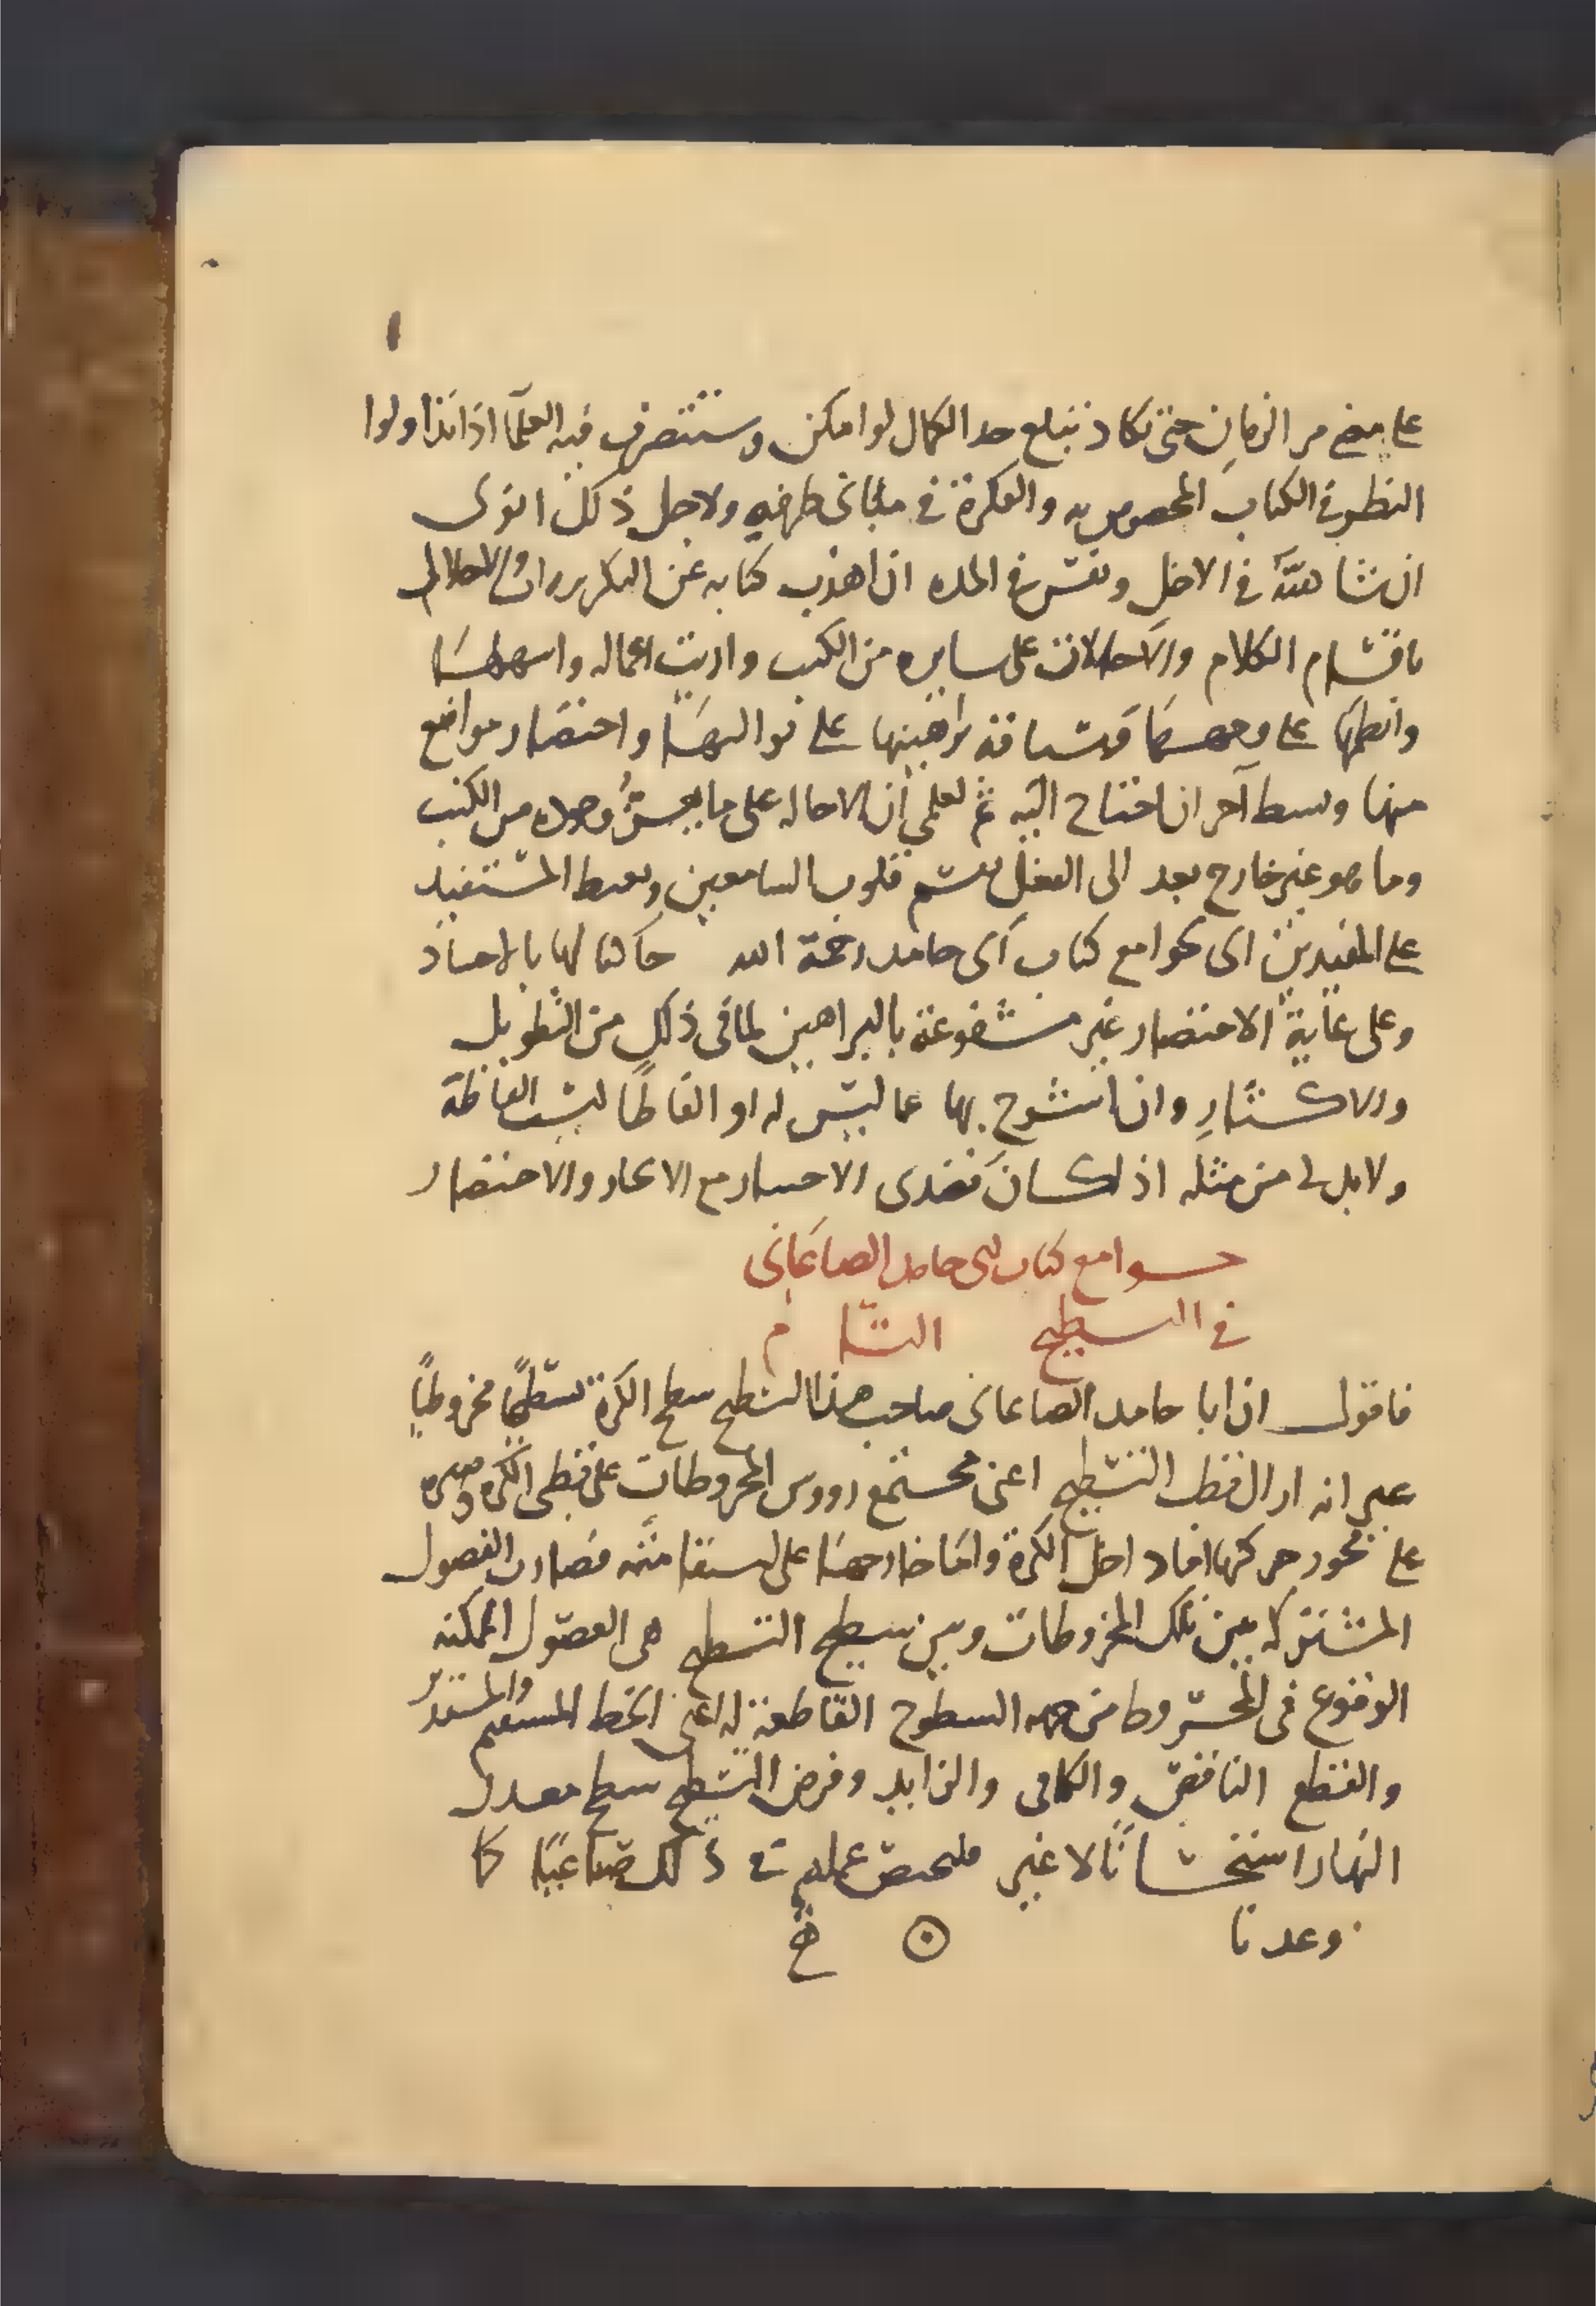 على مضى مر الزمان حتى تكاد تبلغ حد الكمال لو امكن وستتصرف فيه العلمآ اذا تداولوا
النظر فى الكتاب المخصوص به والفكرة فى طرفيه ولاجل ذلك انوى
ان فى الاجل ونفس فى المده ان اهذب كتابه عن التكريرات والاخلال
باقسام الكلام والاحالات على سايره من الكتب وارتب اعماله واسهلها
وانظمها على براهينها على تواليها واختصار مواضع
منها وبسط آخر ان احتاج اليه ثم لعلمى ان الاحاله على ما يعسر وجوده من الكتب
وما هو غير خارج بعد الى الفعل يقسم قلوب السامعين المستفيد
على المفيدين اى بجوامع كتاب ابى حامد رحمة الله حاكيا لها بالاحساد
وعلى غاية الاختصار غير مشفوعة بالبراهين لما فى ذلك من التطويل
والاكثار وان بها عما ليس له او الفاظا ليست الفاظة
ولا بد لى من مثله اذ كان قصدى الاخبار مع الايجاز والاختصار
جوامع كتاب ابى حامد الصاغانى
فى التسطيح التام
فاقول ان ابا حامد الصاغانى صاحب هذا التسطيح سطح الكرة تسطيحا مخروطيا
غير انه ازال قطب التسطيح اعنى مجتمع رووس المخروطات عن قطبى الكرة وصيره
على محور حركتها اما داخل الكرة واما خارجها على استقامته فصارت الفصول
المشتركه بين تلك المخروطات وبين سطح التسطيح هى الفصول الممكنه
الوقوع فى المخروط من جهه السطوح القاطعة له اعنى الخط المستقيم والمستدير
والقطع الناقص والكافى والزايد وفرض التسطيح سطح معدل
النهار استحسانا لا غير فلنحص عمله فى ذلك صناعيا كما
وعدنا